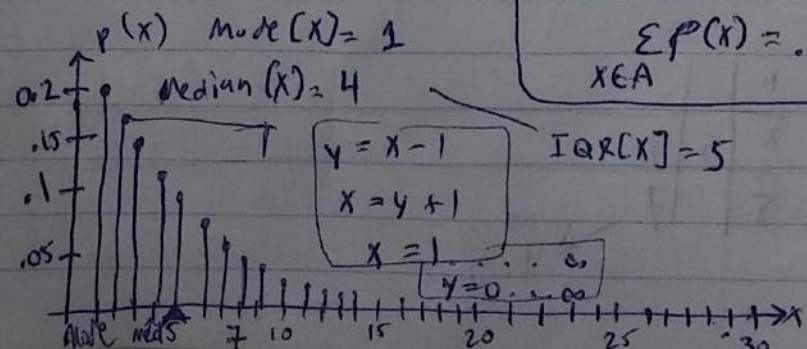 p(x) Mode [X] = 1
Σp(x) = .
x∈A
0.2 Median (X) = 4
.15
IQR[X] = 5
y = x - 1
x = y + 1
x = 1 . . . . ∞
y = 0 . . . ∞
.1
.05
Mode med 5 7 10 15 20 25 30 x